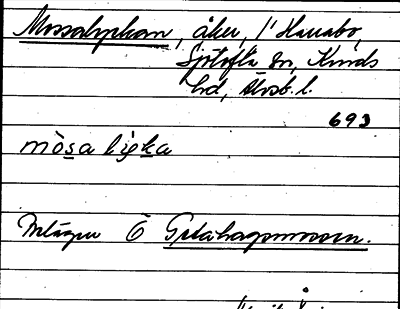 Mossalyckan, åker, 1/1 Hanabo,
Sjötofta sn, Kinds
hd, Älvsb. l.
693
mòsa lyka
Intager Ö Getahagsmossen.